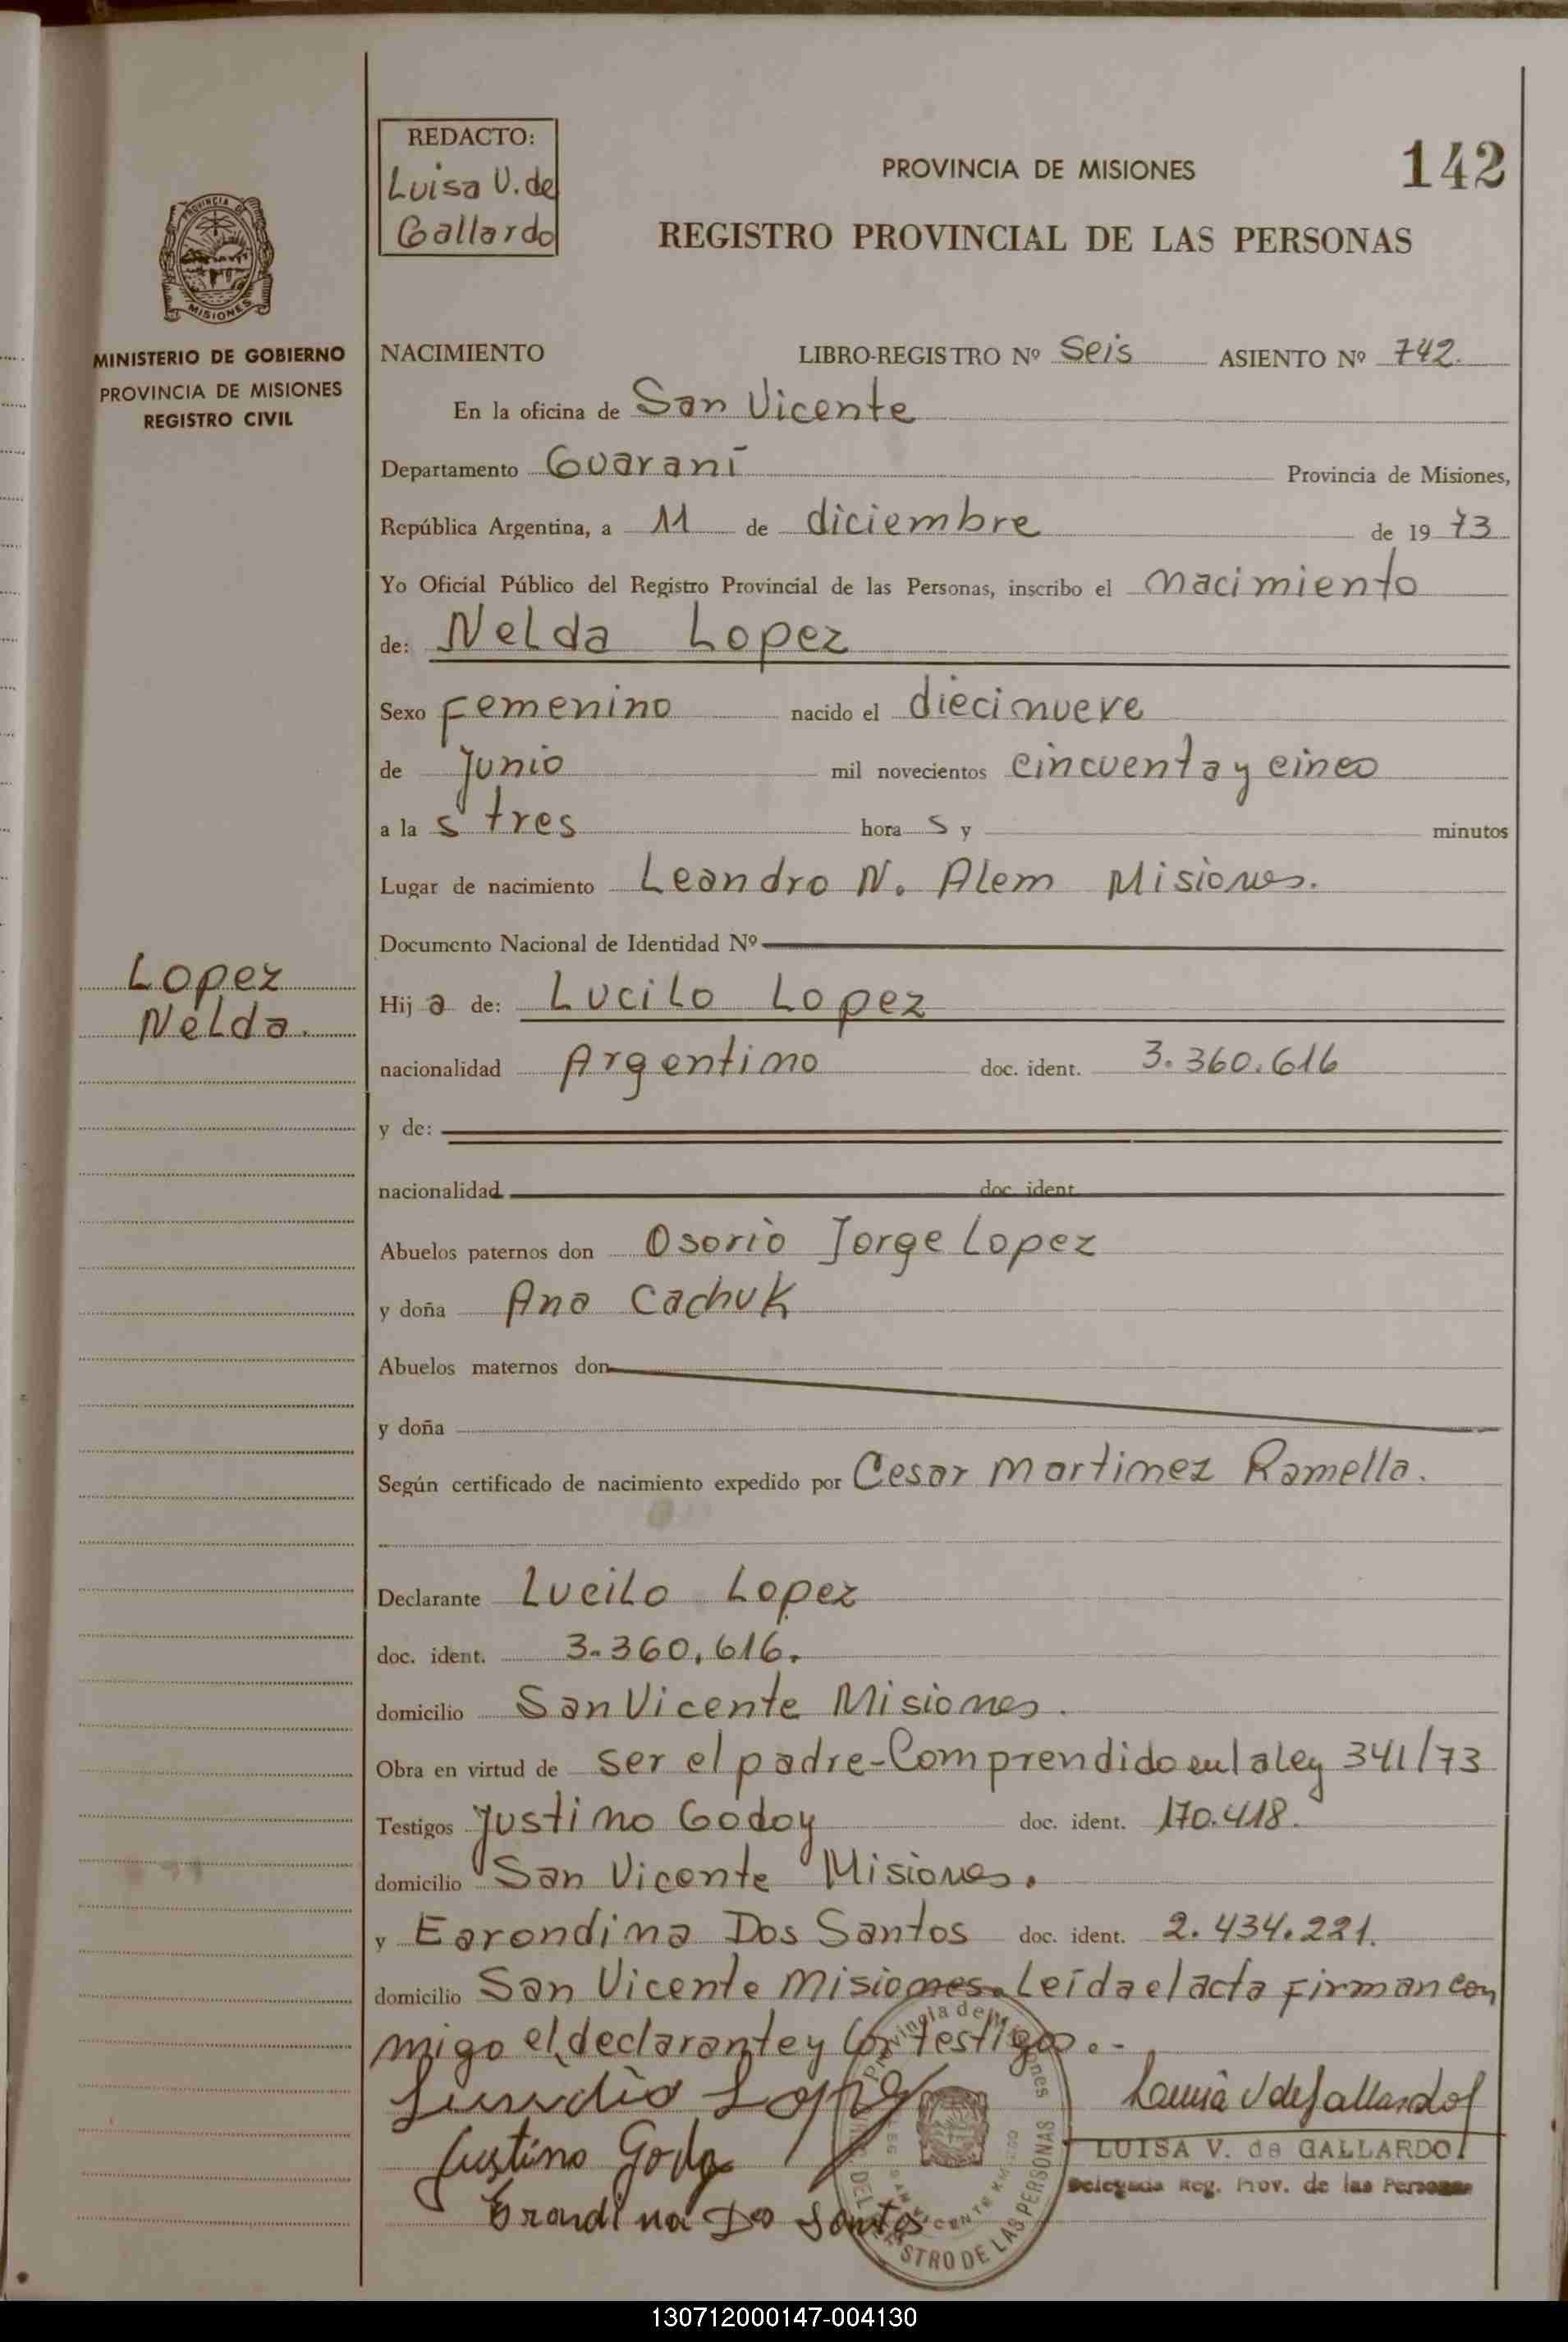 REDACTO:
Luisa V. de
Gallardo
PROVINCIA DE MISIONES
142
REGISTRO PROVINCIAL DE LAS PERSONAS
PROVINCIA DE
MISIONES
MINISTERIO DE GOBIERNO
PROVINCIA DE MISIONES
REGISTRO CIVIL
NACIMIENTO LIBRO-REGISTRO Nº Seis ASIENTO Nº 742.
En la oficina de San Vicente
Departamento Guaraní Provincia de Misiones,
República Argentina, a 11 de diciembre de 19 73
Yo Oficial Público del Registro Provincial de las Personas, inscribo el nacimiento
de: Nelda Lopez
Sexo Femenino nacido el diecinueve
de Junio mil novecientos cincuenta y cinco
a la s tres hora s y minutos
Lugar de nacimiento Leandro N. Alem Misiones.
Documento Nacional de Identidad Nº
Lopez
Nelda.
Hij a de: Lucilo Lopez
nacionalidad Argentino doc. ident. 3.360.616
y de:
nacionalidad doc. ident.
Abuelos paternos don Osorio Jorge Lopez
y doña Ana Cachuk
Abuelos maternos don
y doña
Según certificado de nacimiento expedido por Cesar Martinez Ramella.
Declarante Lucilo Lopez
doc. ident. 3.360.616.
domicilio San Vicente Misiones.
Obra en virtud de ser el padre-Comprendido en la ley 341/73
Testigos Justino Godoy doc. ident. 170.418.
domicilio San Vicente Misiones.
y Earondina Dos Santos doc. ident. 2.434.221.
domicilio San Vicente Misiones. Leída el acta firman con
migo el declarante y los testigos.-
Lopez
Luisa V de Gallardo
Justino Godoy
LUISA V. de GALLARDO
Delegada Reg. Prov. de las Personas
Erondina Dos Santos
Provincia de Misiones
REGISTRO DE LAS PERSONAS
SAN VICENTE KM
130712000147-004130